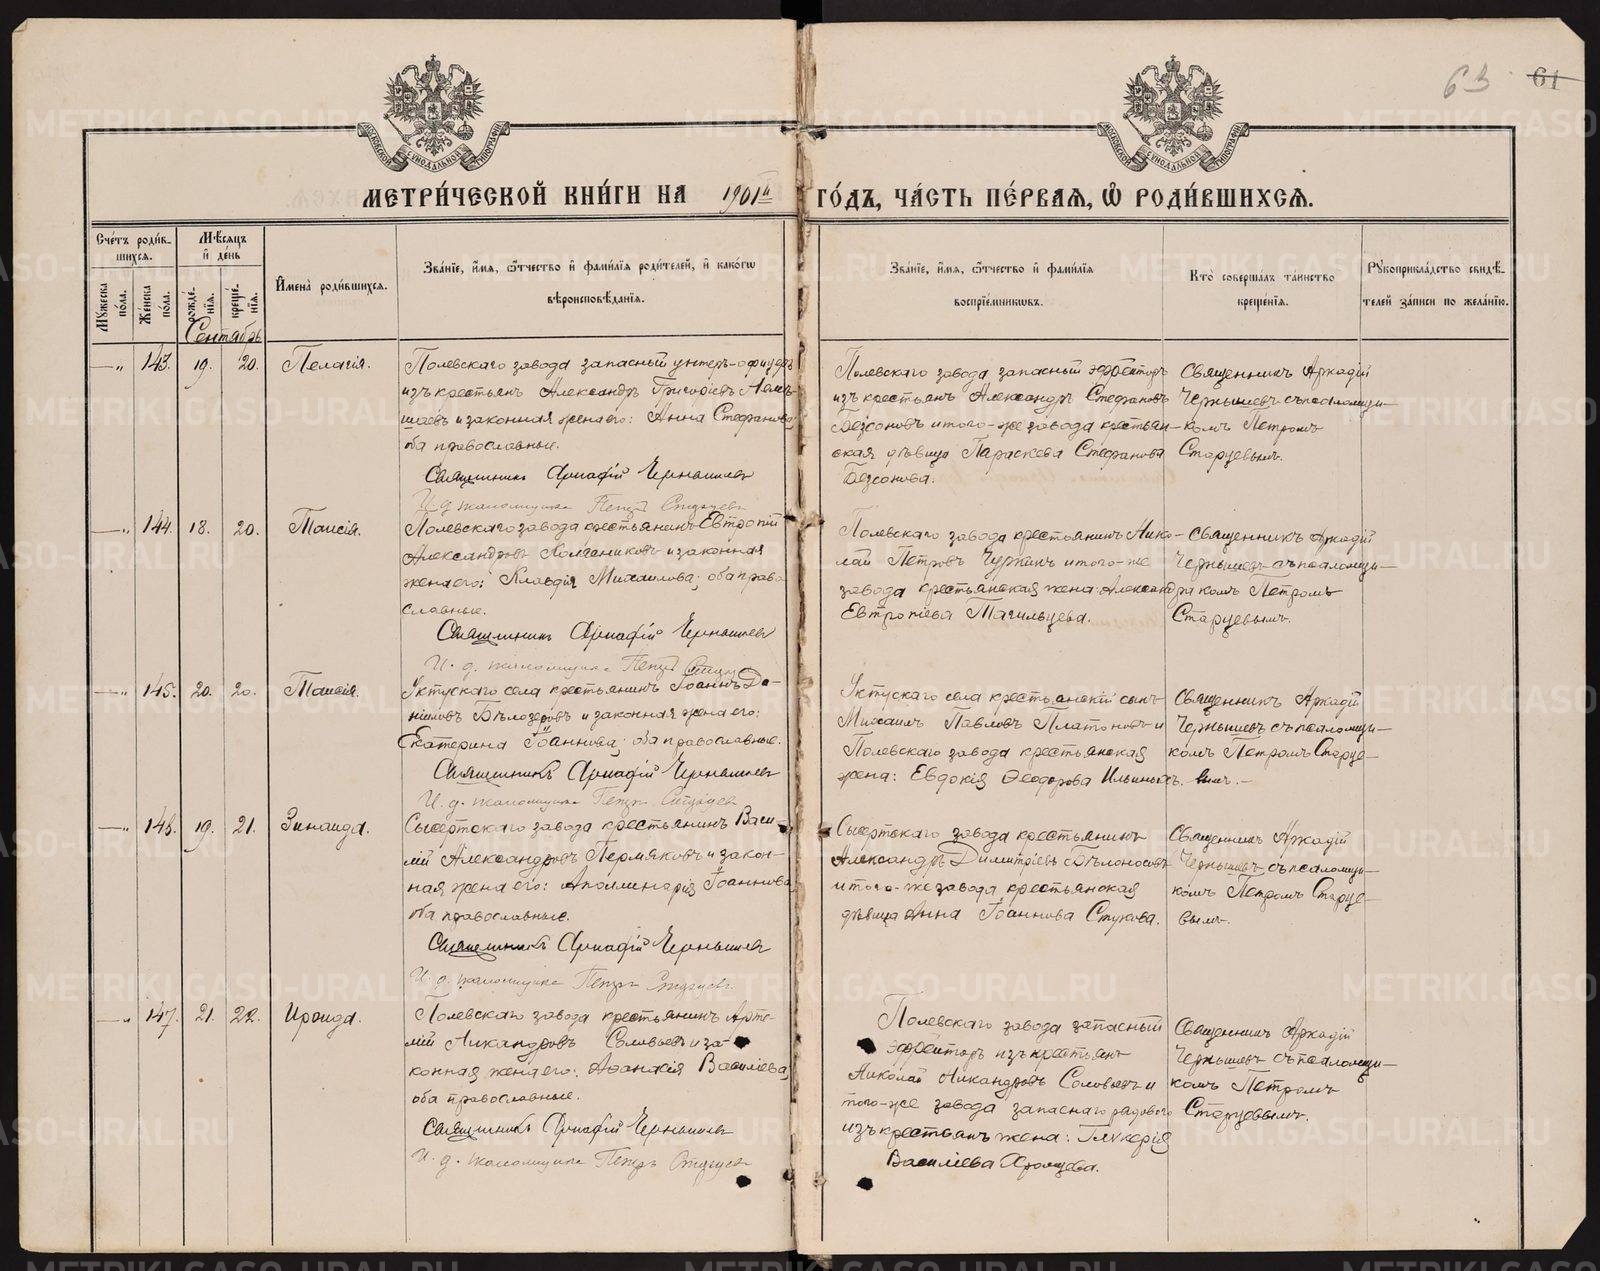 63 61
МЕТРИ́ЧЕСКОЙ КНИ́ГИ НА 1901й ГО́ДЪ, ЧА́СТЬ ПЕ́РВАѦ, Ѽ РОДИ́ВШИХСѦ.
Сче́тъ роди́вшихсѧ.
Мꙋ́жеска по́ла.
Же́нска по́ла.
Мѣ́сѧцъ и҆ де́нь
рожде́нїѧ.
креще́нїѧ.
И҆мена̀ роди́вшихсѧ.
Зва́нїе, и҆́мѧ, ѻ҆́тчество и҆ фами́лїѧ роди́телей, и҆ како́гѡ
вѣроисповѣ́данїѧ.
Зва́нїе, и҆́мѧ, ѻ҆́тчество и҆ фами́лїѧ
воспрїе́мникѡвъ.
Кто̀ соверша́лъ та́инство
креще́нїѧ.
Рꙋкоприкла́дство свидѣ́телей за́писи по жела́нїю.
Сентябрь
—„ 143. 19. 20. Пелагія.
Полевскаго завода запасный унтеръ-офицеръ
изъ крестьянъ Александръ Григоріевъ
и законная жена его: Анна Стефанова,
оба православные.
Священникъ Аркадій Чернышевъ
И. д. псаломщика Петръ Старцевъ
Полевскаго завода запасный ефрейторъ
изъ крестьянъ Александръ Стефановъ
Безсоновъ и того-же завода крестьян-
ская дѣвица Параскева Стефанова
Безсонова.
Священникъ Аркадій
Чернышевъ съ псаломщи-
комъ Петромъ
Старцевымъ.
—„ 144. 18. 20. Таисія.
Полевскаго завода крестьянинъ Евтропій
Александровъ и законная
жена его: Клавдія Михаилова; оба право-
славные.
Священникъ Аркадій Чернышевъ
И. д. псаломщика Петръ Старцевъ
Полевскаго завода крестьянинъ Нико-
лай Петровъ Чуркинъ и того-же
завода крестьянская жена: Александра
Евтропіева Тагильцева.
Священникъ Аркадій
Чернышевъ съ псаломщи-
комъ Петромъ
Старцевымъ.
—„ 145. 20. 20. Таисія.
Уктускаго села крестьянинъ Іоаннъ Да-
ніиловъ Бѣлозеровъ и законная жена его:
Екатерина Іоаннова; оба православные.
Священникъ Аркадій Чернышевъ
И. д. псаломщика Петръ Старцевъ
Уктускаго села крестьянскій сынъ
Михаилъ Павловъ Платоновъ и
Полевскаго завода крестьянская
жена: Евдокія Ѳеодорова Ильиныхъ.
Священникъ Аркадій
Чернышевъ съ псаломщи-
комъ Петромъ Старце-
вымъ.—
—„ 146. 19. 21. Зинаида.
Сысертскаго завода крестьянинъ Васи-
лій Александровъ Пермяковъ и закон-
ная жена его: Аполлинарія Іоаннова
оба православные.
Священникъ Аркадій Чернышевъ
И. д. псаломщика Петръ Старцевъ
Сысертскаго завода крестьянинъ
Александръ Димитріевъ Бѣлоносовъ
и того-же завода крестьянская
дѣвица Анна Іоаннова Стукова.
Священникъ Аркадій
Чернышевъ съ псаломщи-
комъ Петромъ Старце-
вымъ.
—„ 147. 21. 22. Ираида.
Полевскаго завода крестьянинъ Арте-
мій Никандровъ Соловьевъ и за-
конная жена его: Аѳанасія Василіева,
оба православные.
Священникъ Аркадій Чернышевъ
И. д. псаломщика Петръ Старцевъ
Полевскаго завода запасный
ефрейторъ изъ крестьянъ
Николай Никандровъ Соловьевъ и
того-же завода запаснаго рядового
изъ крестьянъ жена: Гликерія
Василіева
Священникъ Аркадій
Чернышевъ съ псаломщи-
комъ Петромъ
Старцевымъ.